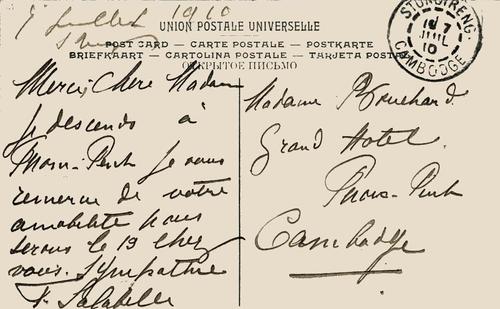 7 Juillet 1910
UNION POSTALE UNIVERSELLE
POST CARD — CARTE POSTALE — POSTKARTE
BRIEFKAART — CARTOLINA POSTALE — TARJETA POSTAL
ОТКРЫТОЕ ПИСЬМО
STUNGTRENG
7
JUIL
10
CAMBODGE
Merci, Chère Madame
Je descends à
Pnom-Penh Je vous
remercie de votre
amabilité nous
serons le 19 chez
vous. Sympathie
Madame
Grand Hotel
Pnom-Penh
Cambodge